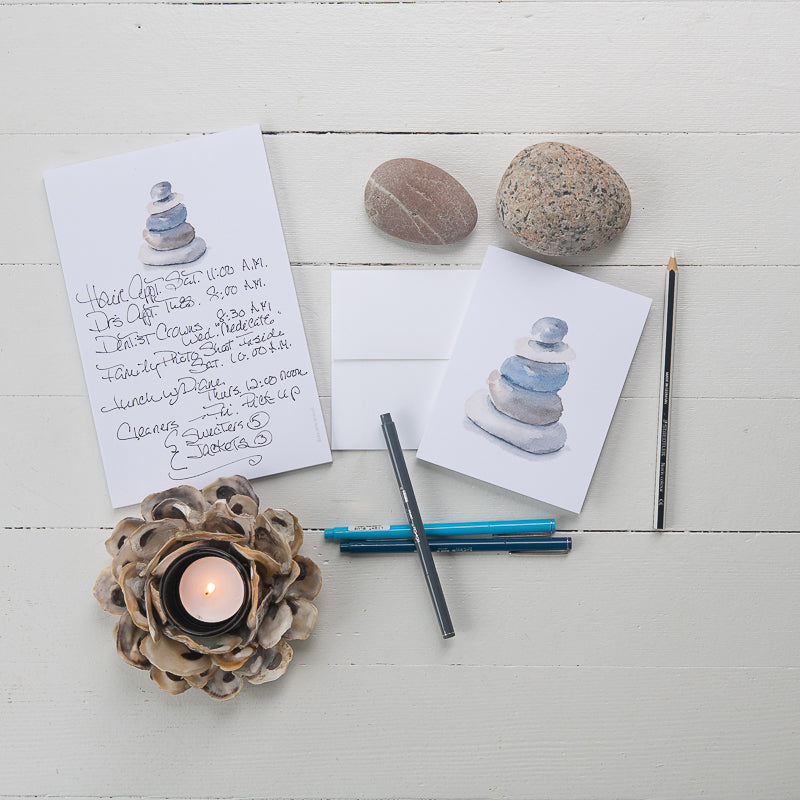 Hair Appt. Sat. 11:00 A.M.
Dr's Appt Tues. 8:00 A.M.
Dentist Crowns 8:30 A.M.
Wed. "Medicate"
Family Photo Shoot Inside
Sat. 10:00 A.M.
Lunch w/ Diane
Thurs. 12:00 noon
Cleaners Fri. Pick Up
Sweaters 5
Jackets 3